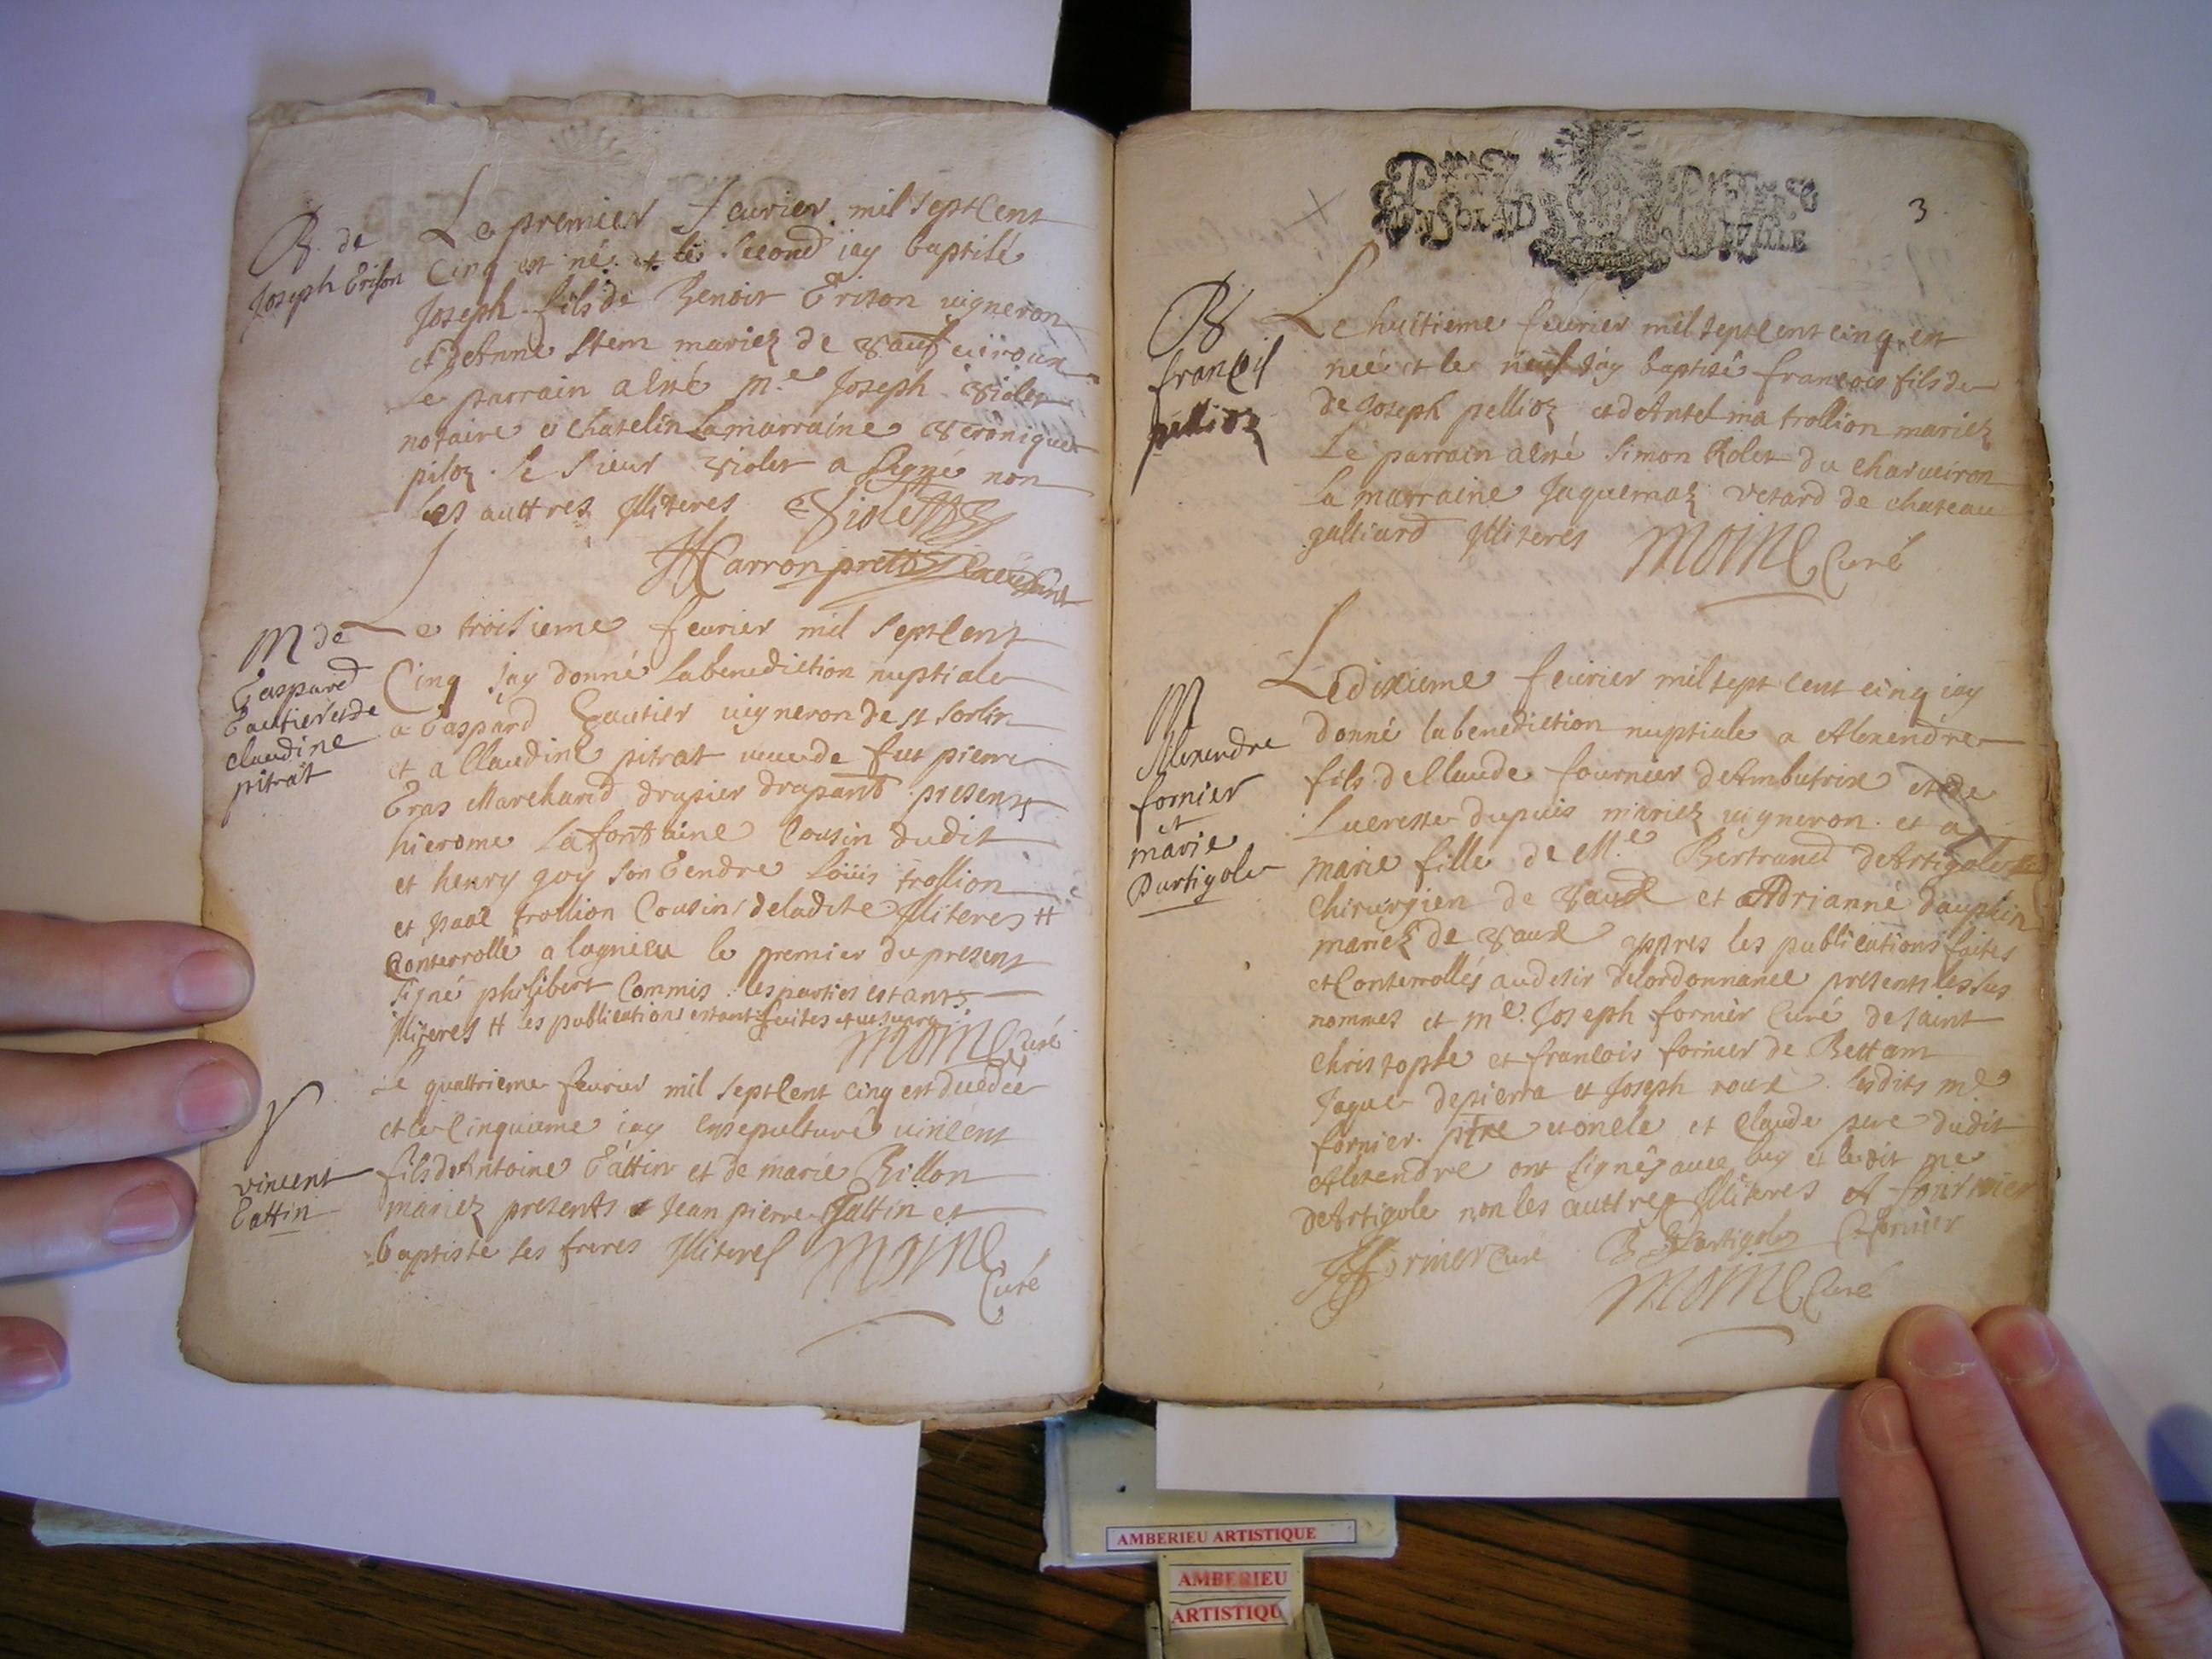 B. de
Joseph Grison
Le premier feurier mil sept Cent
Cinq est né et le second iay baptisé
Joseph fils de Benoit Grison uigneron
et dAnne Stem mariez de Vaux
Le parrain a esté Me Joseph Violet
notaire et Chatelin La marraine Veronique
piloz. le Sieur Violet a signé non
les auttres Illiteres Violet
Carron
M de
Gaspard
Gautier et de
claudine
pitrat
Le troisieme feurier mil sept Cent
Cinq jay donné la benediction nuptiale
a Gaspard Gautier uigneron de st sorlin
et a Claudine pitrat ueuue de fut pierre
Gras Marchand drapier drapant presents
hierome Lafontaine Cousin dudit
et henry guy son Gendre Loüis trollion
et Isaac trollion Cousins deladite Illiteres #
Conterrollé a lagnieu le premier du present
signé philibert Commis. les parties estants
Illiteres # les publications estant faites
Moine Curé
vincent
Gattin
Le quattrieme feurier mil sept Cent cinq est
et le Cinquieme iay Ensepulturé uincent
fils dAntoine Gattin et de marie Billon
mariez presents Jean pierre Gattin et
baptiste ses freres Illiteres Moine
Curé
3
B
francois
pellioz
Le huitieme feurier mil sept Cent cinq est
née et le neuf iay baptisé francois fils de
de Joseph pellioz et dAntelma trollion mariez
Le parrain a esté Simon Rolet du charueiron
La marraine Jaquemaz vetard de chateau
galliard Illiteres Moine Curé
M
Alexandre
fornier
et
marie
Dartigole
Le dixieme feurier mil sept cent cinq iay
donné la benediction nuptiale a Alexendre
fils de Claude fournier dAmbutrix et de
Lucresse dupuis mariez uigneron. et a
marie fille de Me Bertrand dArtigole
Chirurgien de Vaux et Adrianne dauphin
mariez de Vaux appres les publications faites
et Conterrollés au desir delordonnance presents les sus
nommes et Me Joseph fornier Curé de saint
Christophe et francois fornier de Bettam
Jaque depierra et Joseph roux. lesdits me
fornier. ptre et oncle et Claude pere dudit
Alexendre ont signés auec luy et ledit me
dArtigole non les auttres Illiteres A fournier
J fornier Curé B Dartigole C fornier
Moine Curé
AMBERIEU ARTISTIQUE
AMBERIEU
ARTISTIQU